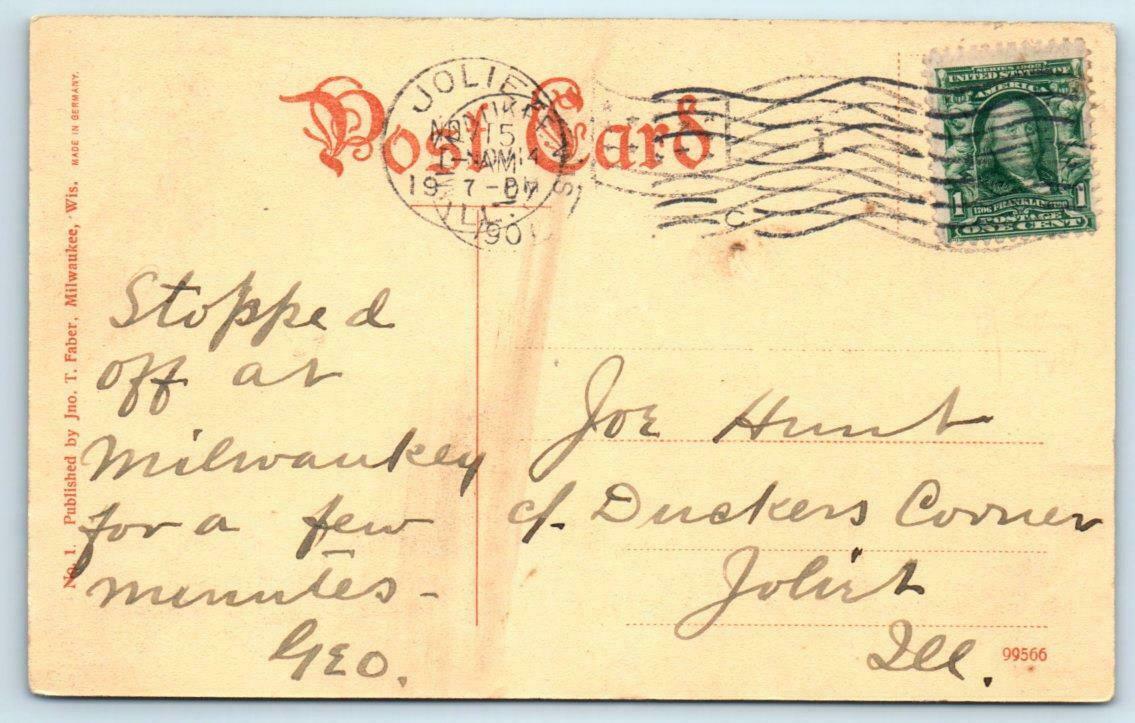 Post Card
JOLIET
ILL.
SERIES 1902
UNITED STATES OF
AMERICA
1 1
FRANKLIN
POSTAGE
ONE CENT
No. 1. Published by Jno. T. Faber, Milwaukee, Wis. MADE IN GERMANY.
Stopped
off at
Milwaukey
for a few
minutes -
GEO.
Joe Hunt
c/. Duckers Corner
Joliet
Ill.
99566